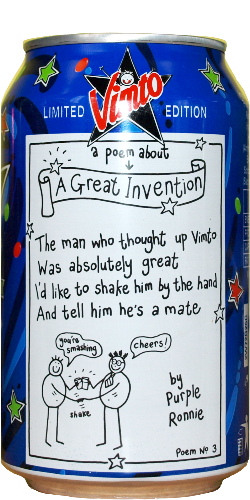 Vimto
LIMITED EDITION
a poem about
A Great Invention
The man who thought up Vimto
Was absolutely great
I'd like to shake him by the hand
And tell him he's a mate
you're
smashing
Cheers!
shake
by
Purple
Ronnie
Poem No 3